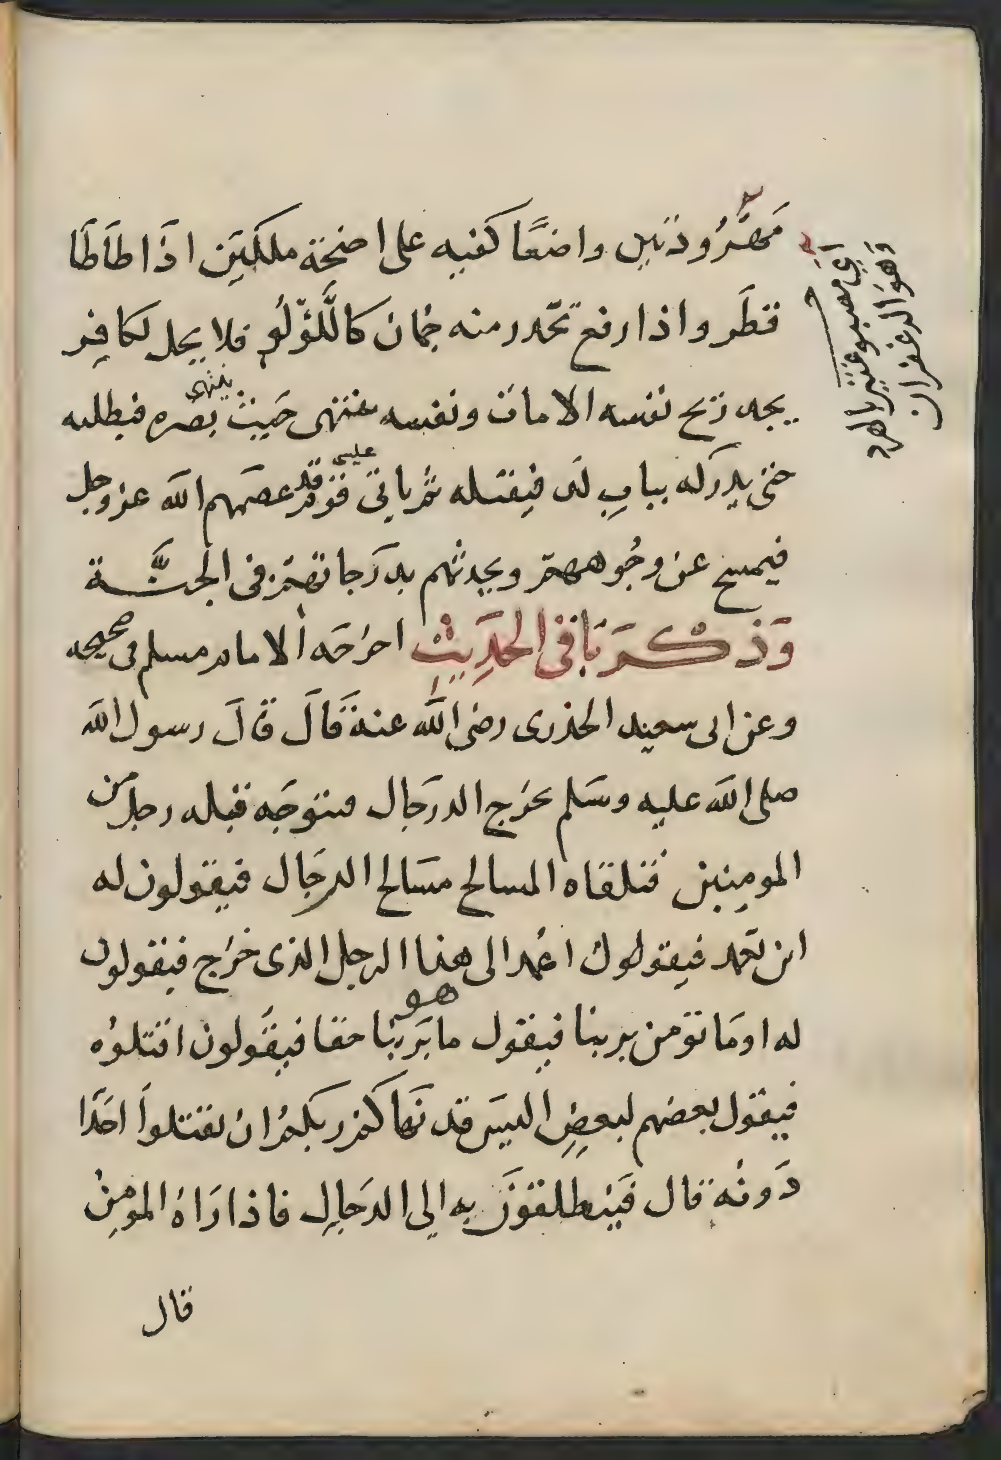 مَهْرُوذتين واضعًا كفيه على اجنحة ملكَين اذَا طاطَا
قطَر واذا رفع تحّدر منه جُمان كاللُّؤلُو فلا يحل لكافِر
يجد ريح نفسه الا مات ونفسه ينتهى حَيث ينتهى بصره فيطلبه
حتى يدركه ببابِ لد فيقتله ثم ياتى عليى قوم قد عصمهم الله عز وجل
فيمسح عن وجُوههم ويحدثهم بدرَجاتهم فى الجنَّة
وَذكرَ بَاقى الحَدِيثِ اخرَجَه الامام مسلم فى صحيحه
وعن ابى سعيد الخدرى رضى الله عنهَ قالَ قالَ رسول الله
صلى الله عليه وسَلم يخرج الدجَال فيتوجَه قبله رجل من
المومِنين فتلقاه المسالح مسَالح الدجَال فيقولون له
اين تعمد فيقول اعمد الى هذا الرجل الذى خرَج فيقولون
له اومَا تؤمن بربنا فيقول ما هو بَربنا حقا فيقُولون اقتلوُه
فيقول بعضهم لبعضٍ اليسَ قد نَهاكم ربكم ان تقتلواَ احَدًا
دَونُه قال فَينطلقونَ به الي الدَجالِ فاذا رَاهُ المومِنُ
قال
اي مصبوغتين بالهرد
وَهوَ الزعفران